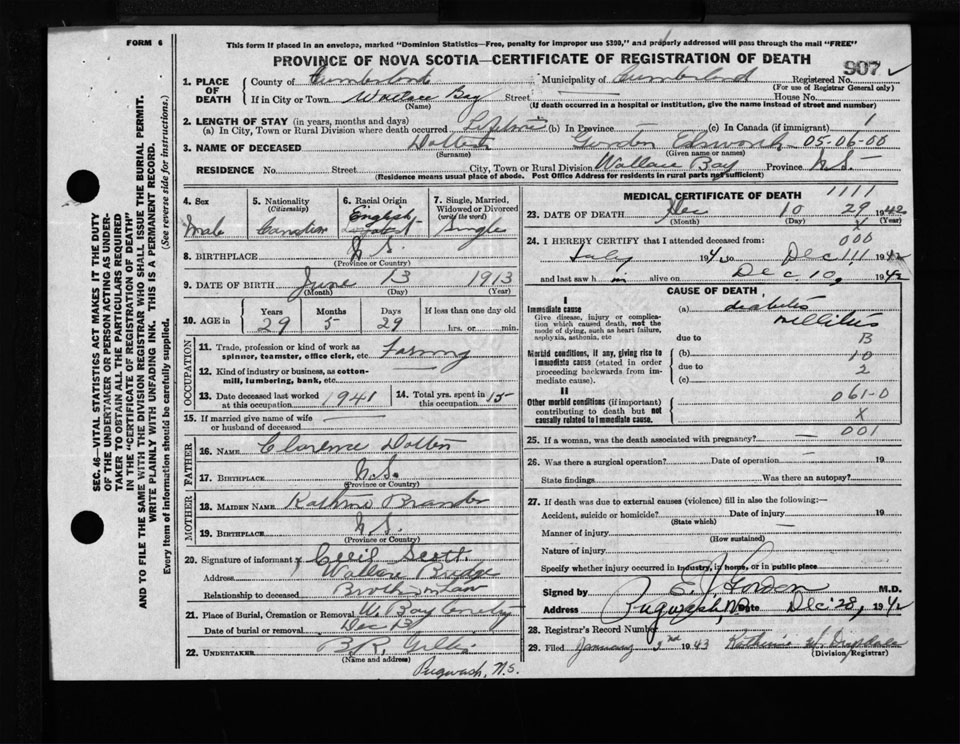 FORM 6
This form if placed in an envelope, marked "Dominion Statistics—Free, penalty for improper use $300," and properly addressed will pass through the mail "FREE"
PROVINCE OF NOVA SCOTIA—CERTIFICATE OF REGISTRATION OF DEATH
907
1. PLACE OF DEATH
County of Cumberland Municipality of Cumberland Registered No.
(For use of Registrar General only)
If in City or Town Wallace Bay Street House No.
(Name) (If death occurred in a hospital or institution, give the name instead of street and number)
2. LENGTH OF STAY (in years, months and days)
(a) In City, Town or Rural Division where death occurred Lifetime (b) In Province (c) In Canada (if immigrant) 1
3. NAME OF DECEASED Gordon 05-06-00
(Surname) (Given name or names)
RESIDENCE No. Street City, Town or Rural Division Wallace Bay Province N.S.
(Residence means usual place of abode. Post Office Address for residents in rural parts not sufficient)
4. Sex
Male
5. Nationality
(Citizenship)
Canadian
6. Racial Origin
English
7. Single, Married, Widowed or Divorced
(write the word)
Single
8. BIRTHPLACE N.S.
(Province or Country)
9. DATE OF BIRTH June 13 1913
(Month) (Day) (Year)
10. AGE in Years Months Days If less than one day old
29 5 29 hrs. or min.
OCCUPATION
11. Trade, profession or kind of work as spinner, teamster, office clerk, etc. Farming
12. Kind of industry or business, as cotton-mill, lumbering, bank, etc.
13. Date deceased last worked at this occupation 1941
14. Total yrs. spent in this occupation 15
15. If married give name of wife or husband of deceased
FATHER
16. NAME Clarence
17. BIRTHPLACE N.S.
(Province or Country)
MOTHER
18. MAIDEN NAME
19. BIRTHPLACE N.S.
(Province or Country)
20. Signature of informant x Cecil Scott
Address Wallace Bridge
Relationship to deceased Brother in Law
21. Place of Burial, Cremation or Removal W. Bay Cemetry
Date of burial or removal Dec 13
22. UNDERTAKER B.R.
(Name and address)
Pugwash, N.S.
MEDICAL CERTIFICATE OF DEATH 1111
23. DATE OF DEATH Dec 10 29 1942
(Month) (Day) (Year)
X
000
24. I HEREBY CERTIFY that I attended deceased from:
July 194 to Dec 111 1942
and last saw h im alive on Dec 10, 1942
CAUSE OF DEATH
I
Immediate cause
Give disease, injury or complication which caused death, not the mode of dying, such as heart failure, asphyxia, asthenia, etc
(a) diabetes
mellitus
due to B
Morbid conditions, if any, giving rise to immediate cause (stated in order proceeding backwards from immediate cause).
(b) 10
due to 2
(c)
II
Other morbid conditions (if important) contributing to death but not causally related to immediate cause.
061-0
X
001
25. If a woman, was the death associated with pregnancy?
26. Was there a surgical operation? Date of operation 19
State findings Was there an autopsy?
27. If death was due to external causes (violence) fill in also the following:—
Accident, suicide or homicide? Date of injury 19
(State which)
Manner of injury
(How sustained)
Nature of injury
Specify whether injury occurred in industry, in home, or in public place
Signed by E. J. Gordon M.D.
Address Pugwash, N.S. Date Dec 28, 1942
28. Registrar's Record Number
29. Filed January 1943
(Division Registrar)
SEC. 46—VITAL STATISTICS ACT MAKES IT THE DUTY
OF THE UNDERTAKER OR PERSON ACTING AS UNDER-
TAKER TO OBTAIN ALL THE PARTICULARS REQUIRED
IN THE "CERTIFICATE OF REGISTRATION OF DEATH"
AND TO FILE THE SAME WITH THE DIVISION REGISTRAR WHO SHALL ISSUE THE BURIAL PERMIT.
WRITE PLAINLY WITH UNFADING INK. THIS IS A PERMANENT RECORD.
Every item of information should be carefully supplied. (See reverse side for instructions.)